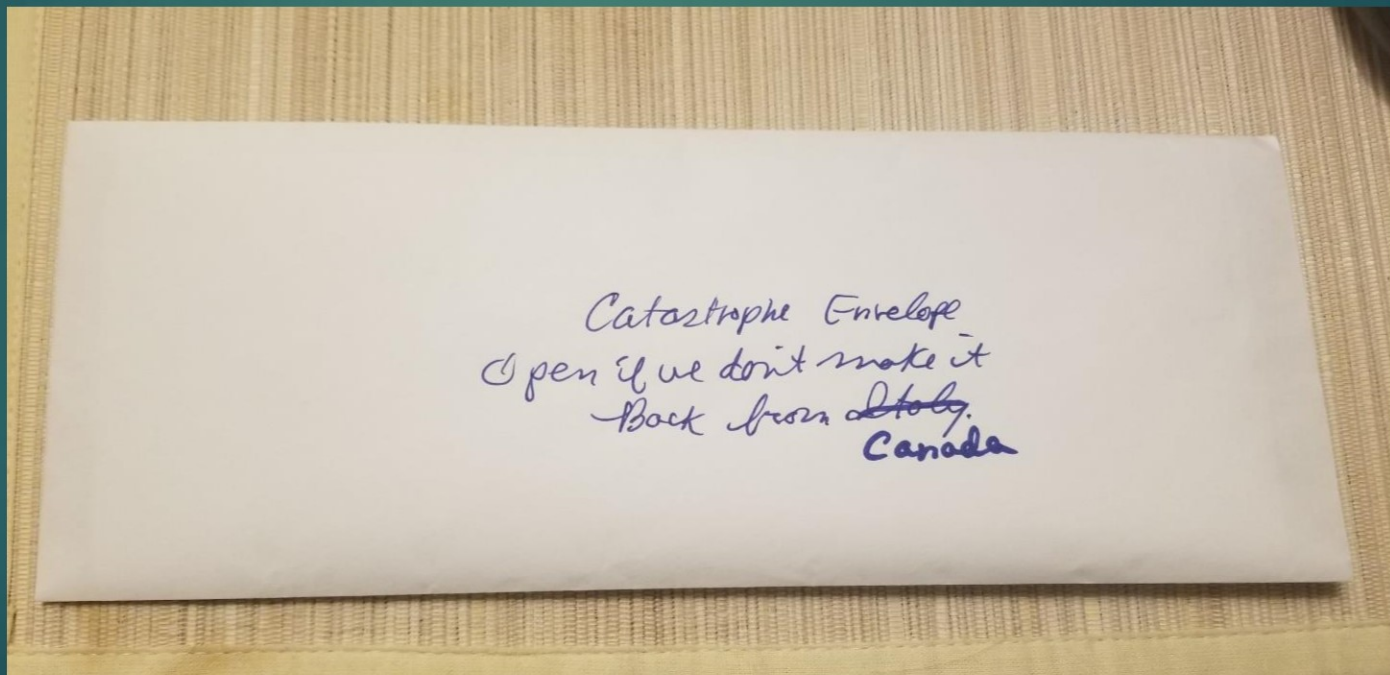 Catastrophe Envelope
Open if we don't make it
Back from Italy.
Canada